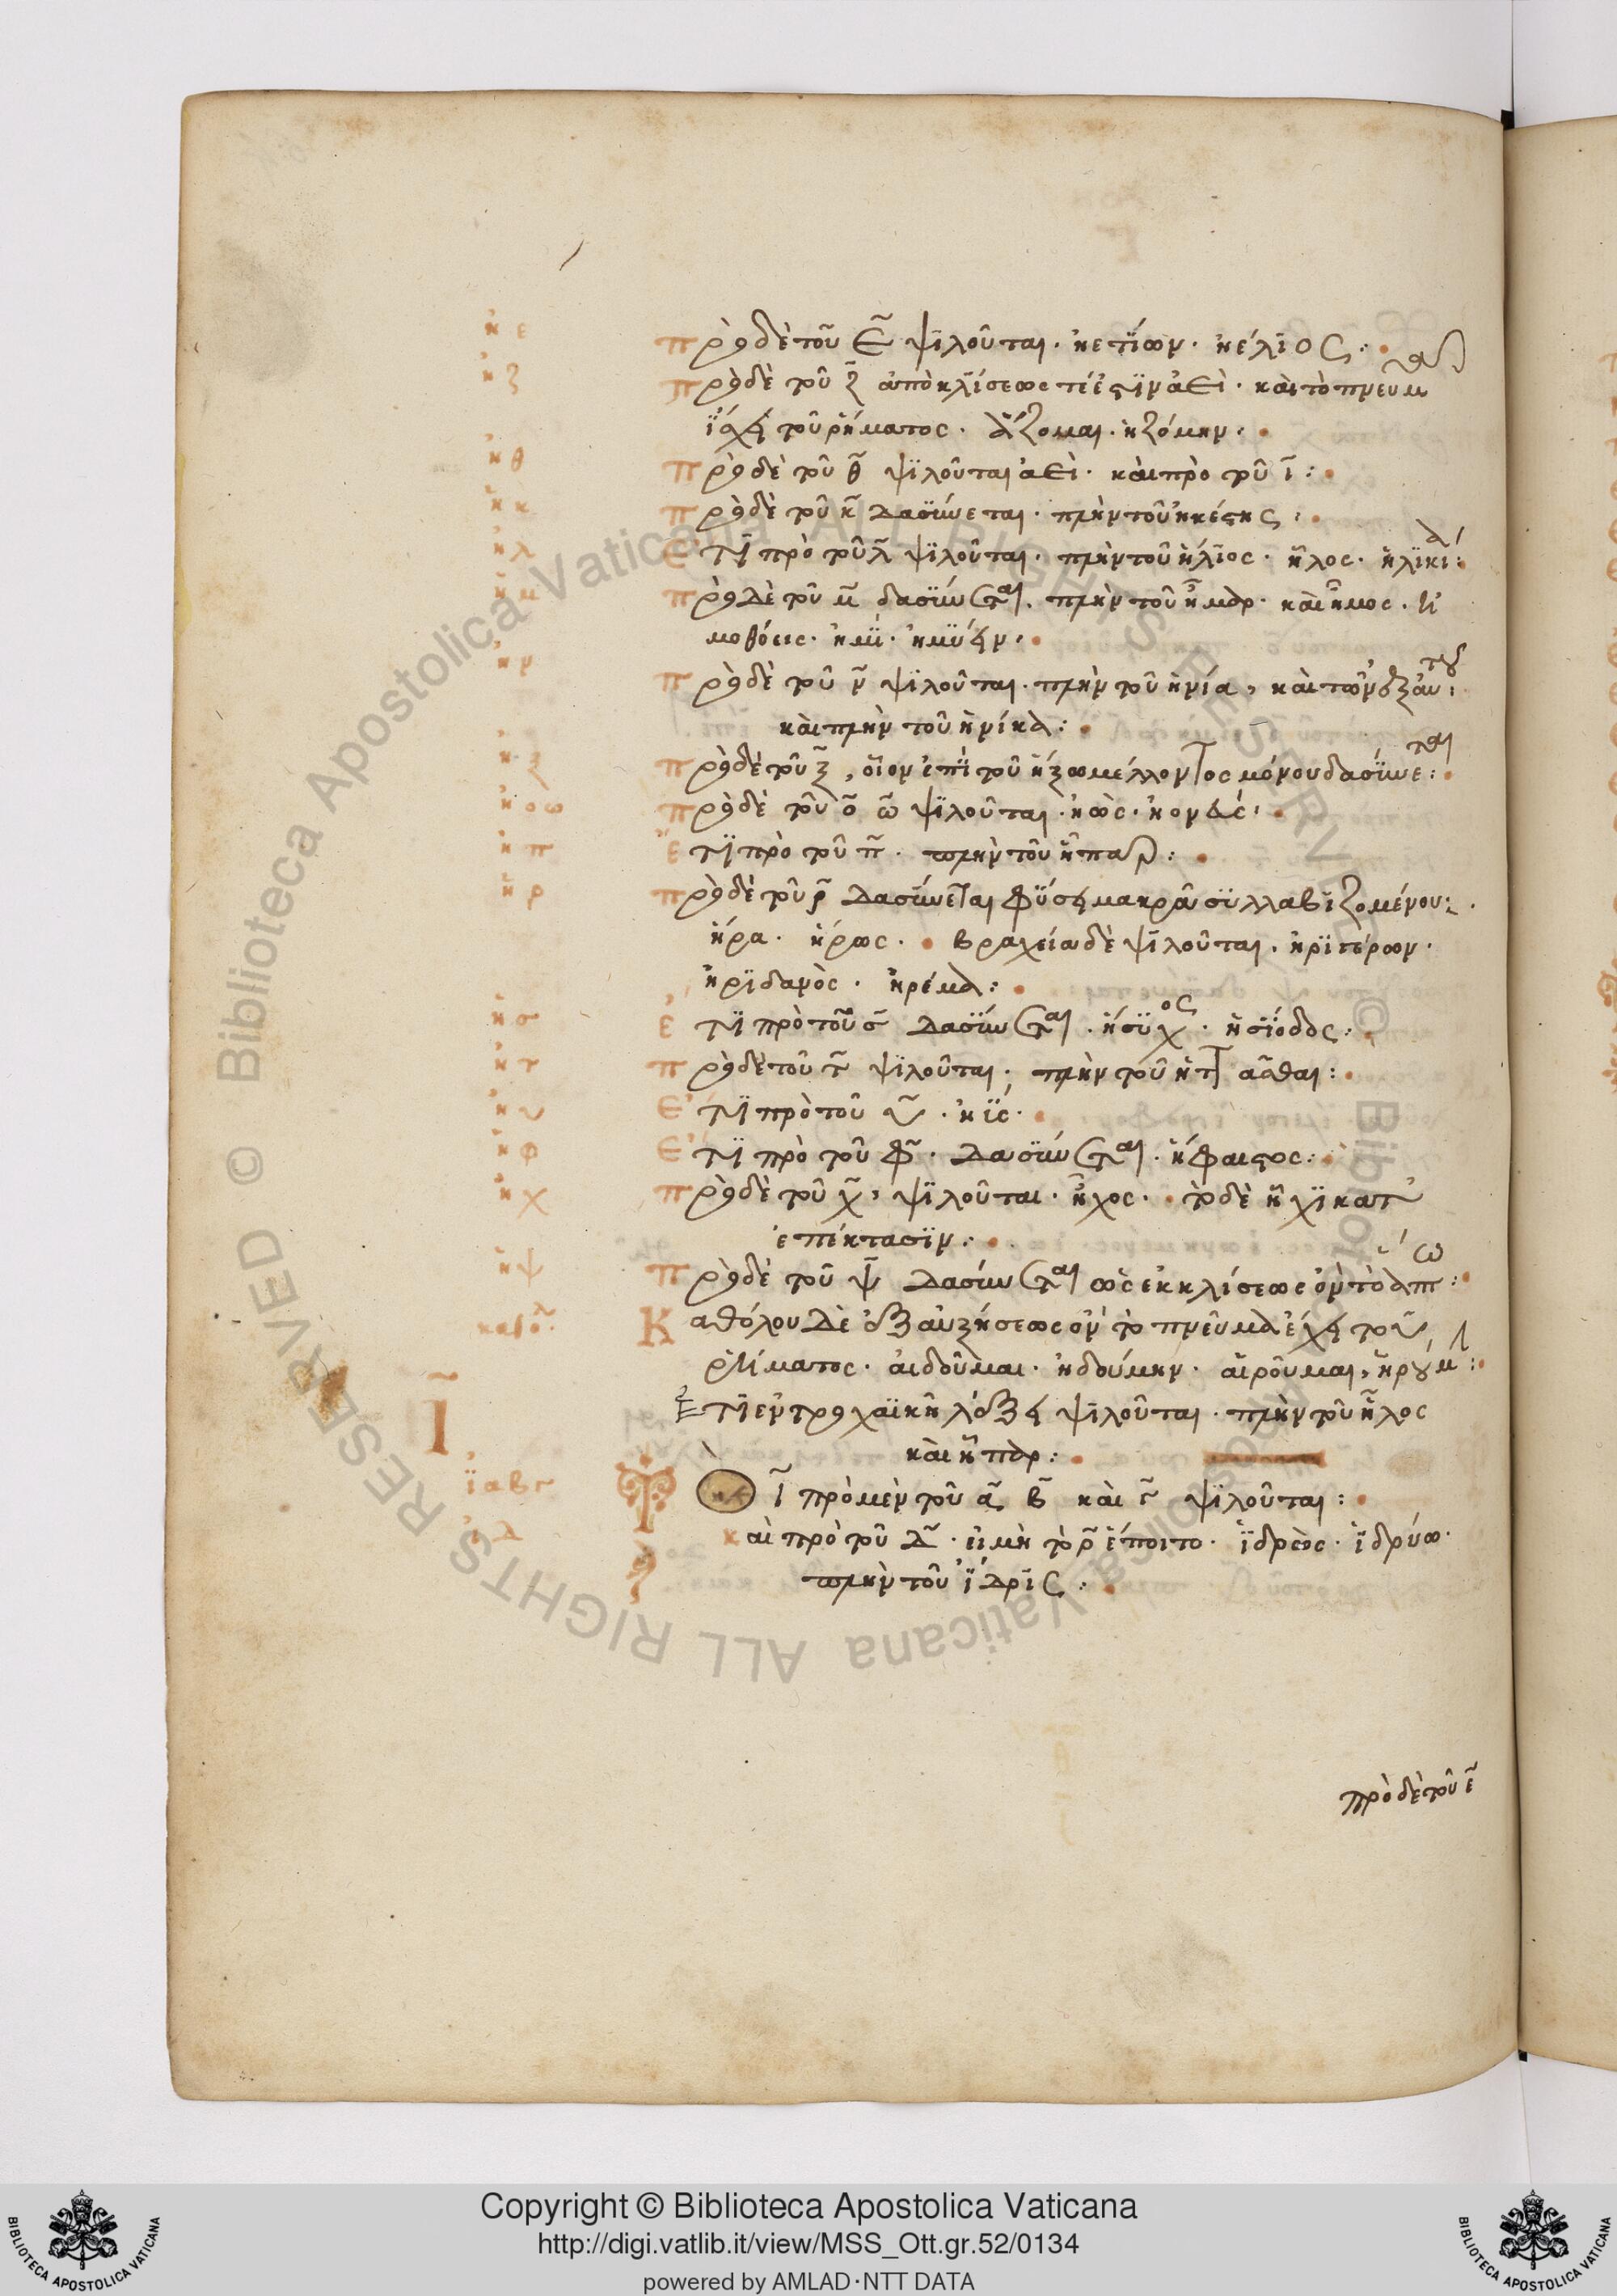 ἠε
πρὸ δὲ τοῦ ε̃ ψϊλοῦται· ἠετΐων· ἠέλϊος:
ἠζ
πρὸ δὲ τοῦ ζ̃ ἀπὸ κλΐσεώς τέ ἐστϊν ἀεὶ· καὶ τὸ πνεῦμα
τοῦ ῥήματος· ἅζομαι· ἡζόμην·
ἠθ
πρὸ δὲ τοῦ θ̃ ψϊλοῦται ἀεὶ· καὶ πρὸ τοῦ ϊ̃:
ἡκ
πρὸ δὲ τοῦ κ̃ δασΰνεται· πλὴν τοῦ ἠκέστης:
ἠλ
ἔτϊ πρὸ τοῦ λ̃ ψϊλοῦται· πλὴν τοῦ ἥλϊος· ἧλος· ἡλϊκία:
ἡμ
πρὸ δὲ τοῦ μ̃ δασΰνεται· πλὴν τοῦ ἦμαρ· καὶ ἦμος· ἠ
μαθόεις· ἠμΰ· ἠμΰειν·
ἠν
πρὸ δὲ τοῦ ν̃ ψϊλοῦται· πλὴν τοῦ ἡνία, καὶ τῶν ἐξ αὐτοῦ:
καὶ πλὴν τοῦ ἡνίκα:
ἡξ
πρὸ δὲ τοῦ ξ̃, οἷον ἐπῒ τοῦ ἥξω μέλλοντος μόνου δασΰνεται:
ἠοω
πρὸ δὲ τοῦ ο̃ ω̃ ψϊλοῦται· ἠὼς·
ἠπ
ἔτϊ πρὸ τοῦ π̃· πλὴν τοῦ ἧπαρ:
ἡρ
πρὸ δὲ τοῦ ρ̃ δασΰνεται φΰσει μακρᾶ συλλαβϊζομένου:
ἥρα· ἥρως· βραχεία δὲ ψϊλοῦται· ἠρϊπέρων·
ἠρϊδανὸς· ἠρέμα:
ἡσ
ἔτϊ πρὸ τοῦ σ̃ δασΰνεται· ἥσϋχος· ἡσΐοδος:
ἠτ
πρὸ δὲ τοῦ τ̃ ψϊλοῦται· πλὴν τοῦ ἡττᾶσθαι:
ἠυ
ἔτϊ πρὸ τοῦ υ̃· ἠΰς·
ἡφ
ἔτϊ πρὸ τοῦ φ̃· δασΰνεται· ἥφαιστος:
ἠχ
πρὸ δὲ τοῦ χ̃, ψϊλοῦται· ἦχος· τὸ δὲ ἧχϊ κατ'
ἐπέκτασϊν:
ἡψ
πρὸ δὲ τοῦ ψ̃ δασύνεται ὡς ἐκ κλίσεως ὂν τὸ ἅπτω:
καθο̃·
Καθόλου δὲ ἐξ αὐξήσεως ὂν τὸ πνεῦμα ἔχει τοῦ
ῥήματος· αἰδοῦμαι· ἠδούμην· αἱροῦμαι, ἡρούμην:
Ἔτϊ ἐν τροχαϊκῆ λέξει ψϊλοῦται· πλὴν τοῦ ἧλος
καὶ ἧπαρ:
Ῑ
ἰαβγ
Τὸ ϊ̃ πρὸ μὲν τοῦ α̃ β̃ καὶ γ̃ ψϊλοῦται:
ἰδ
καὶ πρὸ τοῦ δ̃· εἰ μὴ τὸ ρ̃ ἕποιτο· ἱδρὼς· ἱδρύω·
πλὴν τοῦ ἴδρϊς:
πρὸ δὲ τοῦ ε̃
Copyright © Biblioteca Apostolica Vaticana
http://digi.vatlib.it/view/MSS_Ott.gr.52/0134
powered by AMLAD·NTT DATA
BIBLIOTECA APOSTOLICA VATICANA
BIBLIOTECA APOSTOLICA VATICANA
© Biblioteca Apostolica Vaticana ALL RIGHTS RESERVED
© Biblioteca Apostolica Vaticana ALL RIGHTS RESERVED